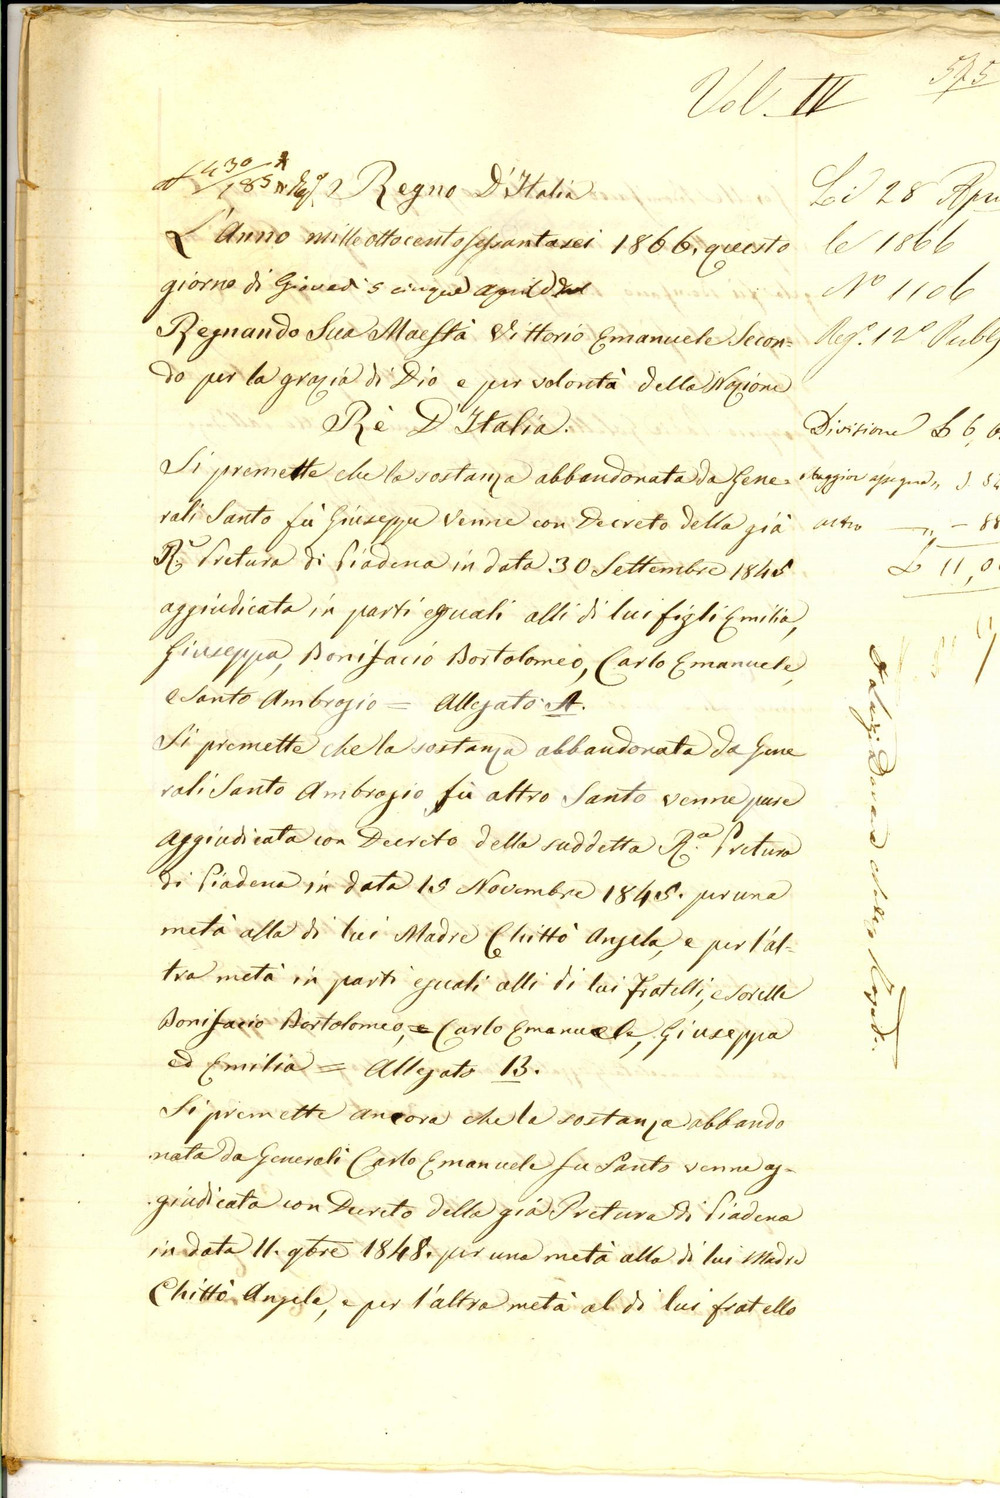 Vol. IV
575
430
Regno D'Italia
L'Anno mille ottocento sessantasei 1866. questo
giorno di Giovedì 5 cinque aprile
Regnando Sua Maestà Vittorio Emanuele Secon=
do per la grazia di Dio e per volontà della Nazione
Rè D'Italia.
Si premette che la sostanza abbandonata da Gene-
rali Santo fù Giuseppe venne con Decreto della già
R.a Pretura di Piadena in data 30 Settembre 1845
aggiudicata in parti eguali alli di lui figli Emilia,
Giuseppa, Bonifacio Bortolomeo, Carlo Emanuele,
e Santo Ambrogio = Allegato A.
Si premette che la sostanza abbandonata da Gene
rali Santo Ambrogio fù altro Santo venne pure
aggiudicata con Decreto della suddetta R.a Pretura
di Piadena in data 15 Novembre 1845. per una
metà alla di lui Madre Chittò Angela, e per l'al-
tra metà in parti eguali alli di lui fratelli, e sorelle
Bonifacio Bortolomeo, e Carlo Emanuele, Giuseppa
ed Emilia = Allegato B.
Si premette ancora che la sostanza abbando
nata da Generali Carlo Emanuele fu Santo venne ag-
giudicata con Decreto della già Pretura di Piadena
in data 11. 9bre 1848. per una metà alla di lui Madre
Chittò Angela, e per l'altra metà al di lui fratello
Li 28 Apri
le 1866
N° 1106
Reg.° 12° Pubb
Divisione £ 6,
Maggior assegno "
altro " - 88
£ 11,0